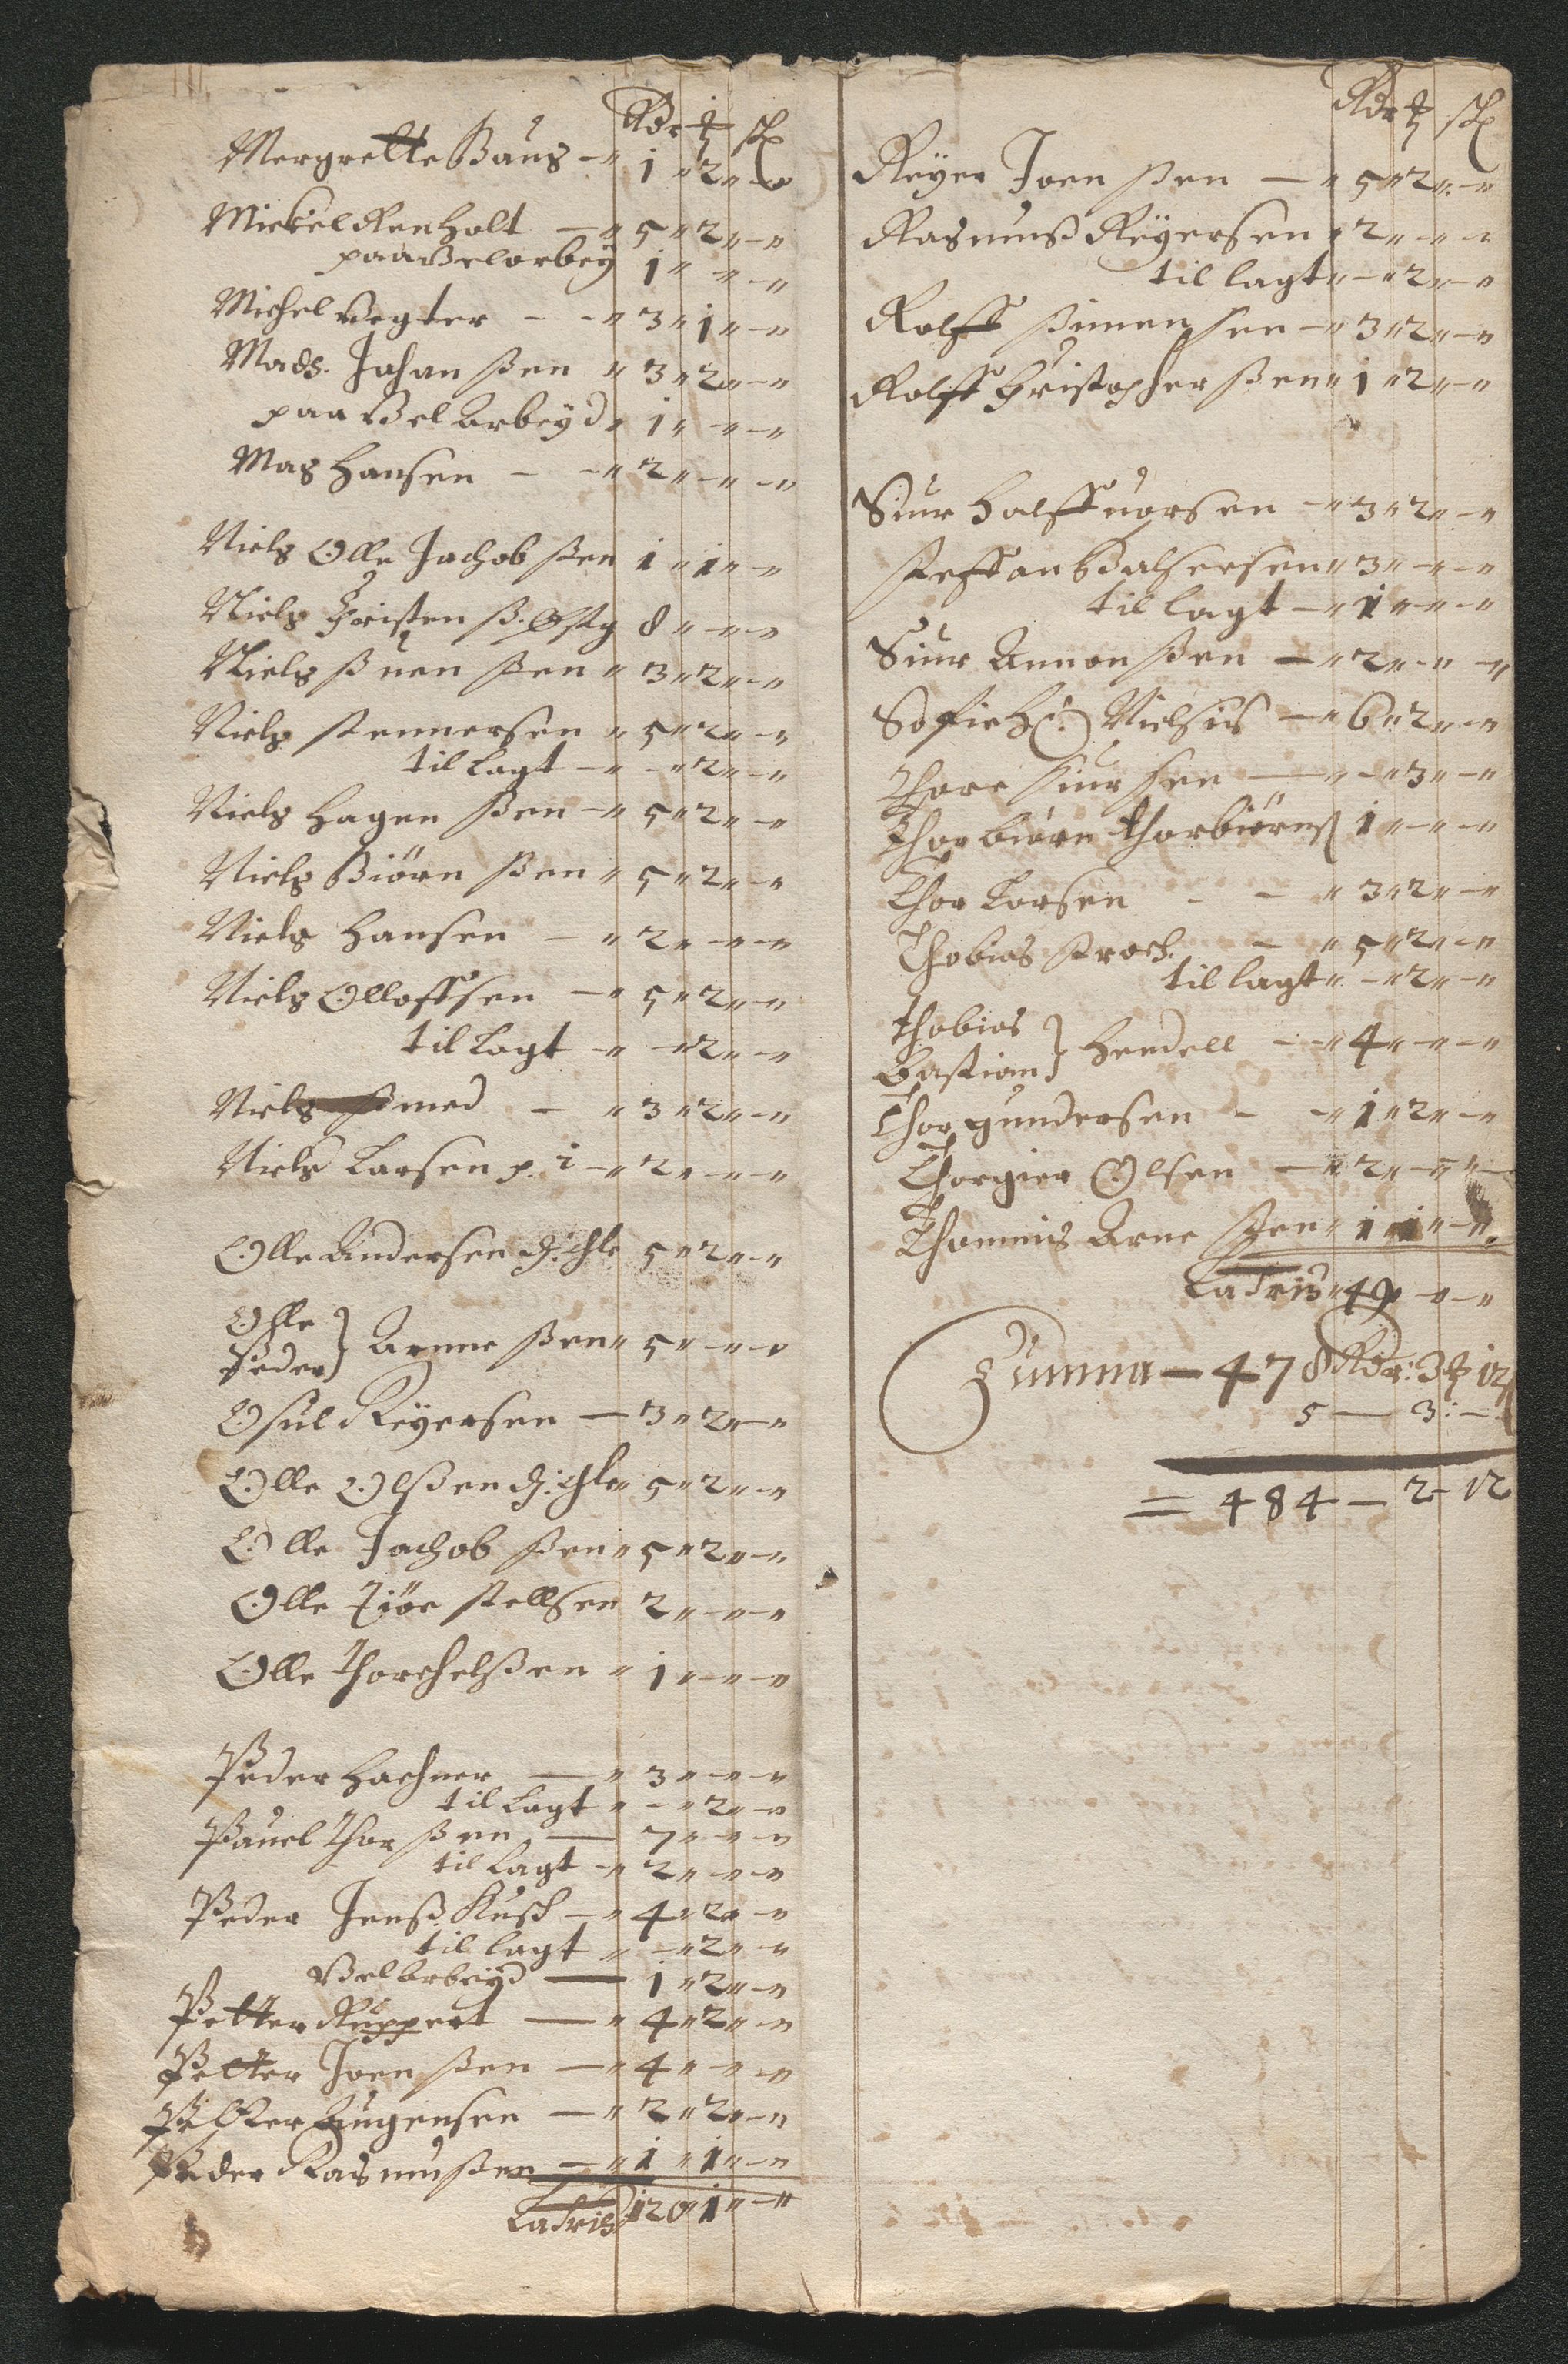 Rdr ȶ sk
Mergrette Baus – 1 " 2 " – "
Mickel Renholt – " 5 " 2 " – "
paa Velarbey 1 " – " – "
Michel Vegter – – " 3 " 1 " – "
Mads. Johan sen " 3 " 2 " – "
paa Vel Arbeyd " 1 " – " – "
Mas Hansen – – " 2 " – " – "
Niels Olle Jachob sen 1 " 1 " – "
Niels Christen s. 8 " – " – "
Niels suen sen " 3 " 2 " – "
Niels stennersen " 5 " 2 " – "
til lagt – " – " 2 " – "
Niels Hagen sen – " 5 " 2 " – "
Niels Biörn sen " 5 " 2 " – "
Niels Hansen – " 2 " – " – "
Niels Olloffsen – " 5 " 2 " – "
til lagt – " – " 2 " – "
Niels smed – " 3 " 2 " – "
Niels Larsen p. i – " 2 " – " – "
Olle Andersen 5 " 2 " – "
Olle
Peder } Arnne sen " 5 " – " – "
Osul Reyersen – 3 " 2 " – "
Olle Olsen 5 " 2 " – "
Olle Jachob sen " 5 " 2 " – "
Olle Kiöe stellsen 2 " – " – "
Olle Thorchelsen " 1 " – " – "
Peder Hachner – " 3 " – " – "
til lagt " – " 2 " – "
Pauel Thor sen – 7 " – " – "
til lagt – " 2 " – " – "
Peder Jens Kusk – " 4 " 2 " – "
til lagt " – " 2 " – "
Vel Arbeyd – 1 " 2 " – "
Petter Ruppert – " 4 " 2 " – "
Petter Joen sen – " 4 " – " – "
Petter Augensen – " 2 " 2 " – "
Peder Rasmussen – " 1 " 1 " – "
Latris 120 " 1 " – "
Rdr ȶ sk
Reyer Joen sen – " 5 " 2 " – "
Rasmus Reyersen " 2 " – " – "
til lagt " – " 2 " – "
Rolff simen sen – " 3 " 2 " – "
Rolff Christopher sen " 1 " 2 " – "
Siur Halffuorsen – " 3 " 2 " – "
steffan Balsersen " 3 " – " – "
til lagt – " 1 " – " – "
Siur Annon sen – " 2 " – " – "
Sofie H(:) Nielsis – " 6 " 2 " – "
Thore siur sen – " – " 3 " – "
Thorbiörn Thorbiörns 1 " – " – "
Thor Larsen – – " 3 " 2 " – "
Thobias stroch. – " 5 " 2 " – "
til lagt " – " 2 " – "
Thobias
Bastian } Hendell – " 4 " – " – "
Thor gundersen – – " 1 " 2 " – "
Thorgier Olsen – " 2 " – " – "
Thommis Arne sen " 1 " 1 " – "
Latris " 49 " – " – "
Summa – 478 Rdr: 3 ȶ 12 s
5 – 3: –
= 484 – 2 – 12